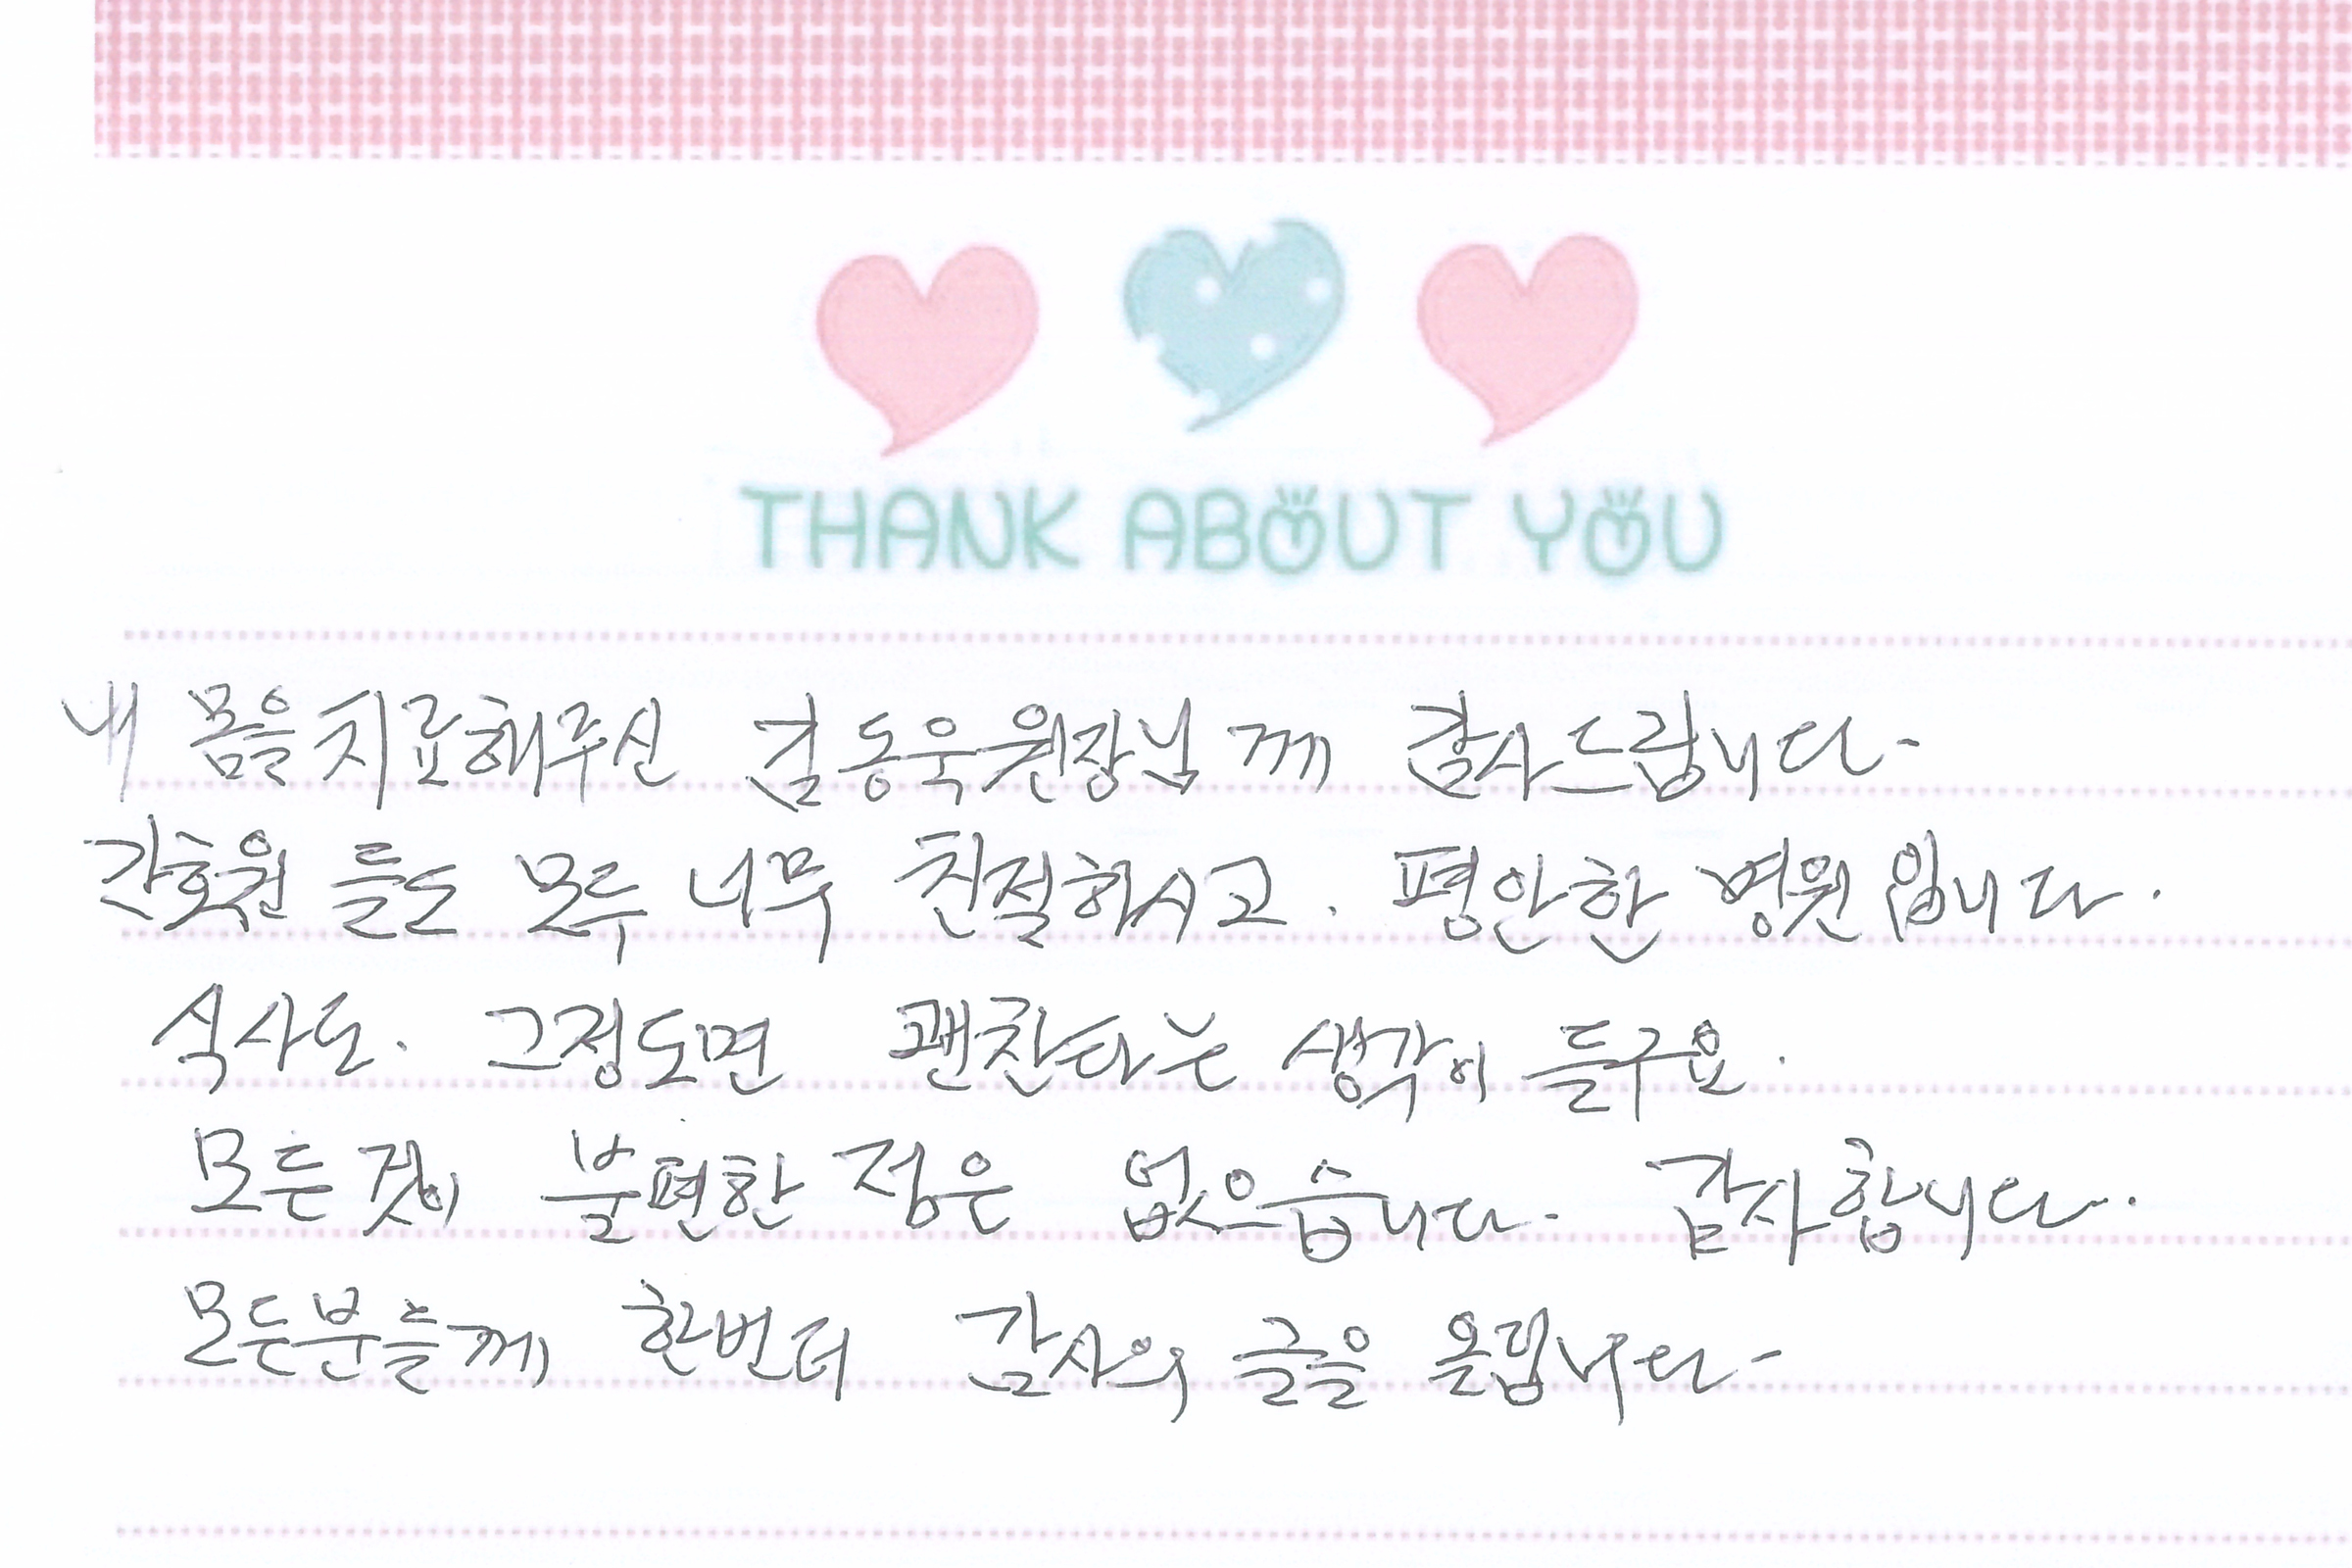 THANK ABOUT YOU
내 몸을 치료해주신 김동욱원장님께 감사드립니다.
간호원 들도 모두 너무 친절하시고. 평안한 병원입니다.
식사도. 그정도면 괜찬타는 생각이 들구요.
모든것이 불편한 점은 없으습니다. 감사합니다.
모든분들께 한번더 감사의 글을 올립니다.